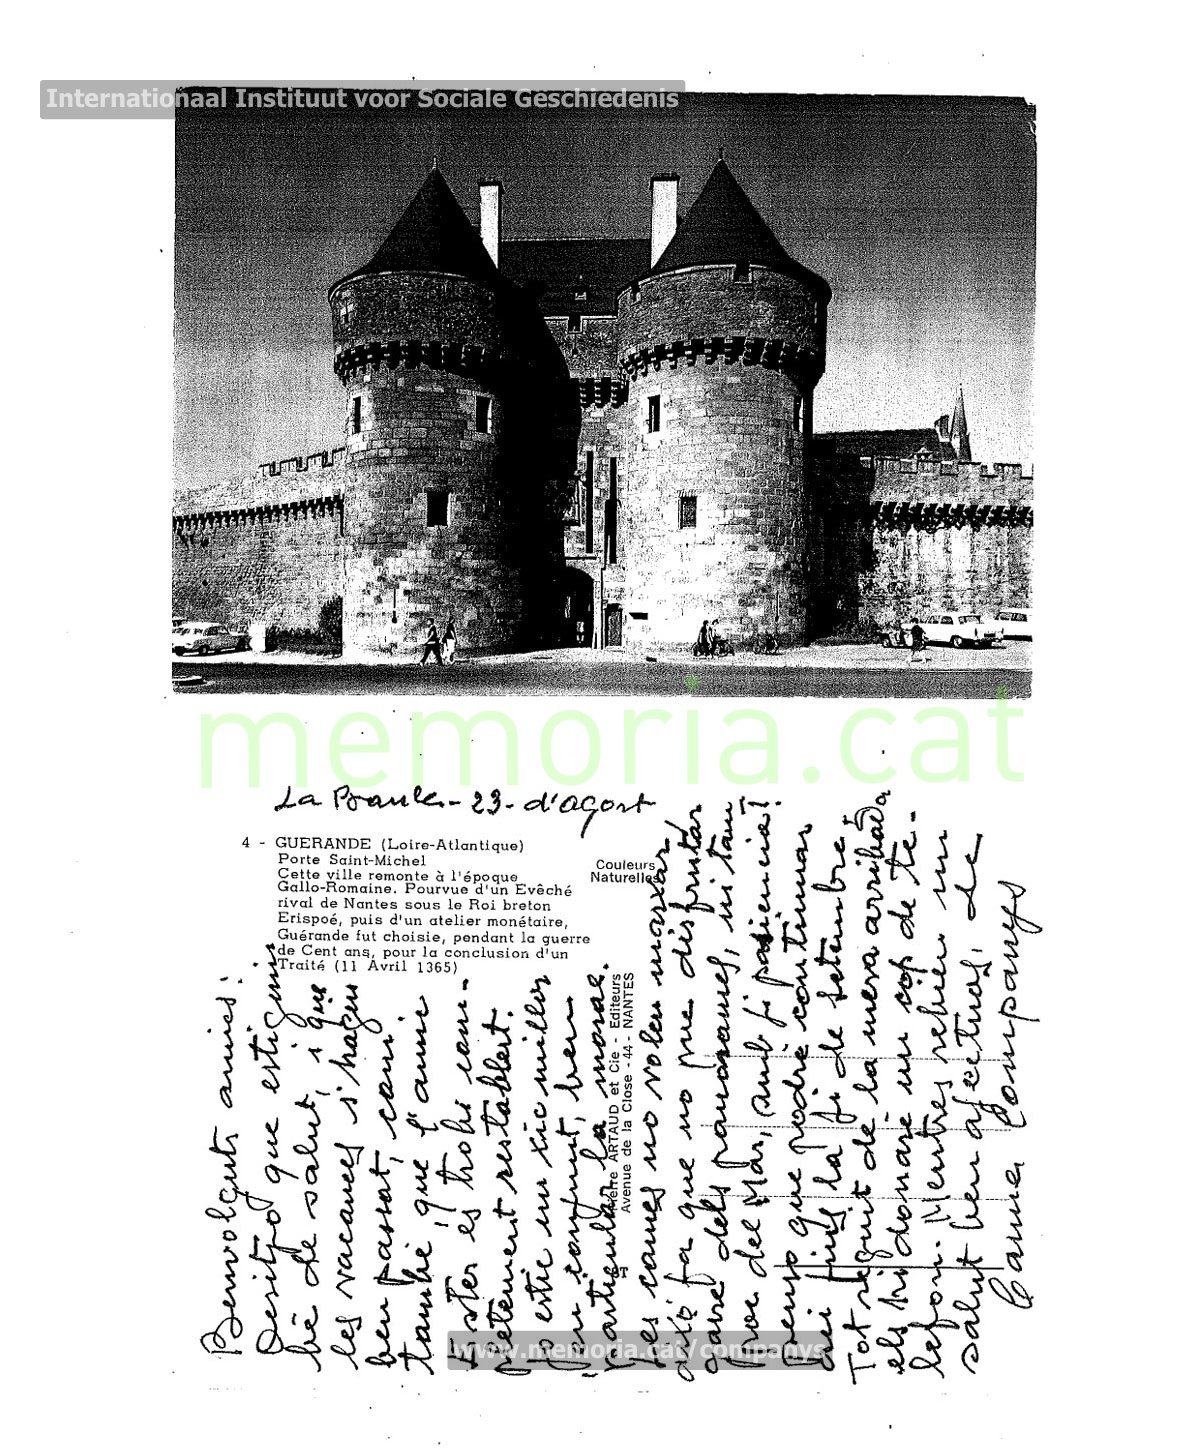 Internationaal Instituut voor Sociale Geschiedenis
memoria.cat
La Baule - 23 - d'agost
4 - GUERANDE (Loire-Atlantique)
Porte Saint-Michel
Cette ville remonte à l'époque
Gallo-Romaine. Pourvue d'un Evêché
rival de Nantes sous le Roi breton
Erispoé, puis d'un atelier monétaire,
Guérande fut choisie, pendant la guerre
de Cent ans, pour la conclusion d'un
Traité (11 Avril 1365)
Couleurs
Naturelles
Pierre ARTAUD et Cie - Editeurs
Avenue de la Close - 44 - NANTES
Benvolguts amics:
Desitjo que estiguin
bé de salut, i que
les vacances s'hagin
ben passat, com
també que l'amic
Ester es trobi com-
pletament restablert.
Jo estic un xic millor
però no
particular la
Les cames no volen marxar
això fa que no puc disfrutar
gaire dels panorames, ni tam
poc del Mar, amb fi paciencia!
penso que podré continuar
aquí fins la fi de setembre
Tot seguit de la meva arribada
els hi donaré un cop de te-
lefon. Mentres rebien un
salut ben afectuós, de
Carme Companys
www.memoria.cat/companys